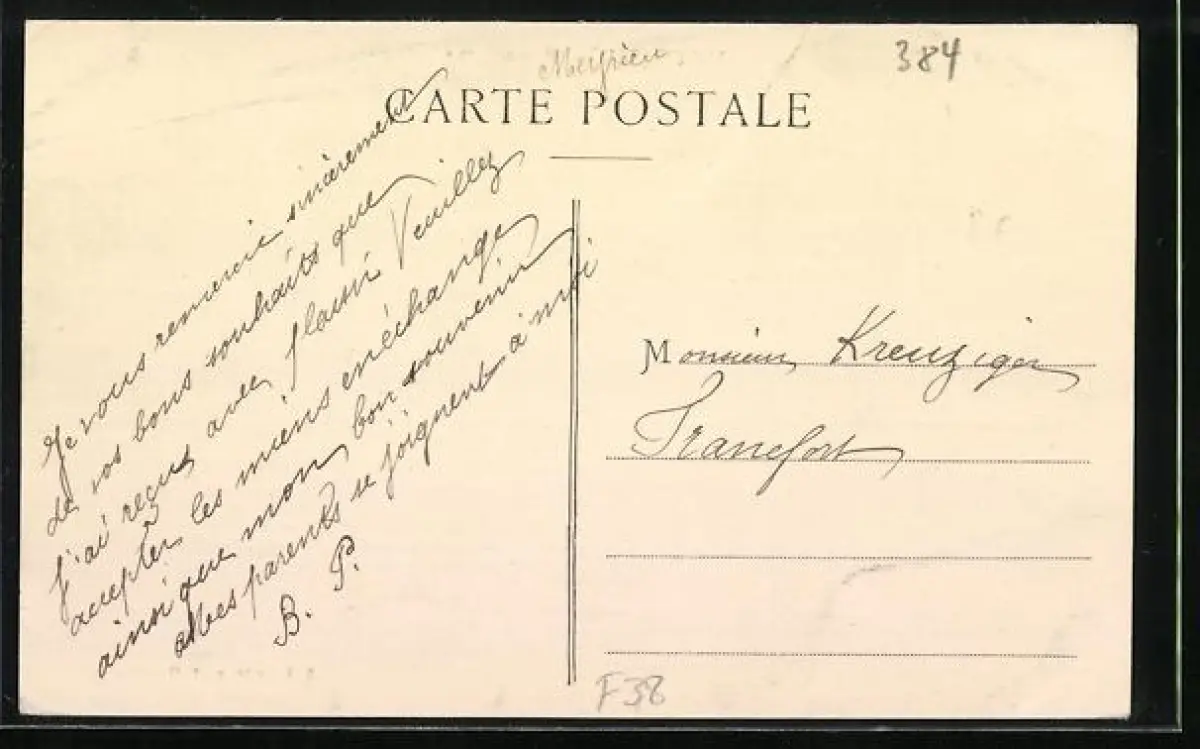 384
CARTE POSTALE
Je vous remercie sincèrement
de vos bons souhaits que
j'ai reçus avec plaisir Veuillez
accepter les miens en échange
ainsi que mon bon souvenir
Mes parents se joignent à moi
B. P.
Monsieur Kreuziger
Francfort
F38